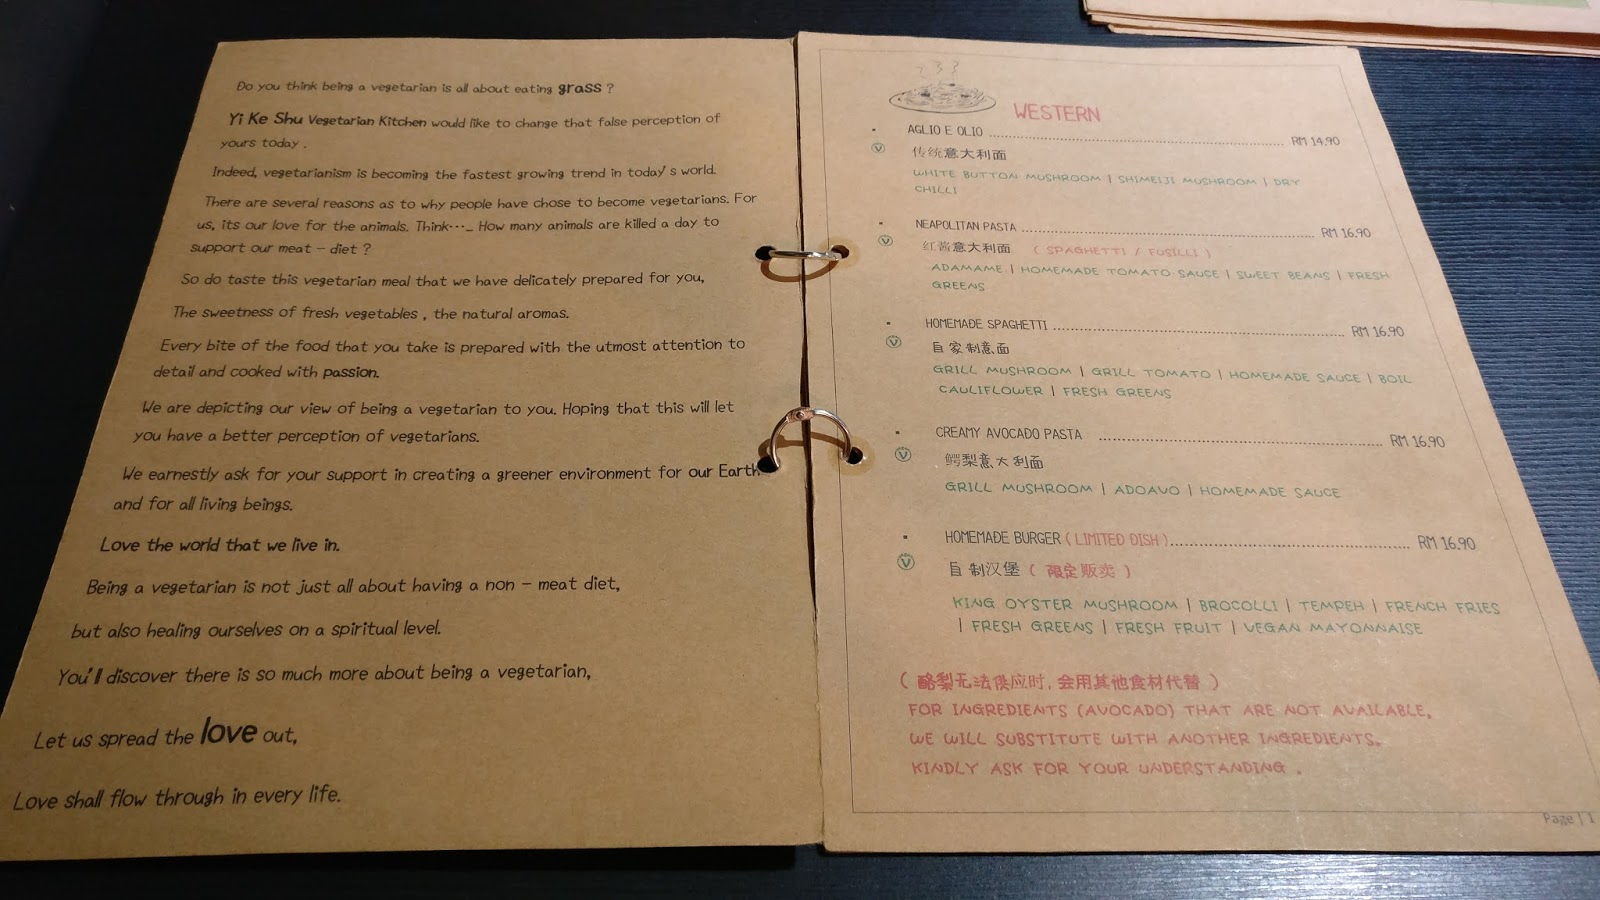 Do you think being a vegetarian is all about eating grass ?
Yi Ke Shu Vegetarian Kitchen would like to change that false perception of
yours today .
Indeed, vegetarianism is becoming the fastest growing trend in today's world.
There are several reasons as to why people have chose to become vegetarians. For
us, its our love for the animals. Think…_ How many animals are killed a day to
support our meat – diet ?
So do taste this vegetarian meal that we have delicately prepared for you,
The sweetness of fresh vegetables , the natural aromas.
Every bite of the food that you take is prepared with the utmost attention to
detail and cooked with passion.
We are depicting our view of being a vegetarian to you. Hoping that this will let
you have a better perception of vegetarians.
We earnestly ask for your support in creating a greener environment for our Earth
and for all living beings.
Love the world that we live in.
Being a vegetarian is not just all about having a non – meat diet,
but also healing ourselves on a spiritual level.
You'll discover there is so much more about being a vegetarian,
Let us spread the love out,
Love shall flow through in every life.
WESTERN
AGLIO E OLIO ........ RM 14.90
传统意大利面
WHITE BUTTON MUSHROOM | SHIMEIJI MUSHROOM | DRY
CHILLI
NEAPOLITAN PASTA ........ RM 16.90
红酱意大利面 ( SPAGHETTI / FUSILLI )
ADAMAME | HOMEMADE TOMATO SAUCE | SWEET BEANS | FRESH
GREENS
HOMEMADE SPAGHETTI ........ RM 16.90
自家制意面
GRILL MUSHROOM | GRILL TOMATO | HOMEMADE SAUCE | BOIL
CAULIFLOWER | FRESH GREENS
CREAMY AVOCADO PASTA ........ RM 16.90
鳄梨意大利面
GRILL MUSHROOM | ADOAVO | HOMEMADE SAUCE
HOMEMADE BURGER ( LIMITED DISH ) ........ RM 16.90
自制汉堡 ( 限定贩卖 )
KING OYSTER MUSHROOM | BROCOLLI | TEMPEH | FRENCH FRIES
| FRESH GREENS | FRESH FRUIT | VEGAN MAYONNAISE
( 酪梨无法供应时, 会用其他食材代替 )
FOR INGREDIENTS (AVOCADO) THAT ARE NOT AVAILABLE,
WE WILL SUBSTITUTE WITH ANOTHER INGREDIENTS.
KINDLY ASK FOR YOUR UNDERSTANDING .
Page | 1